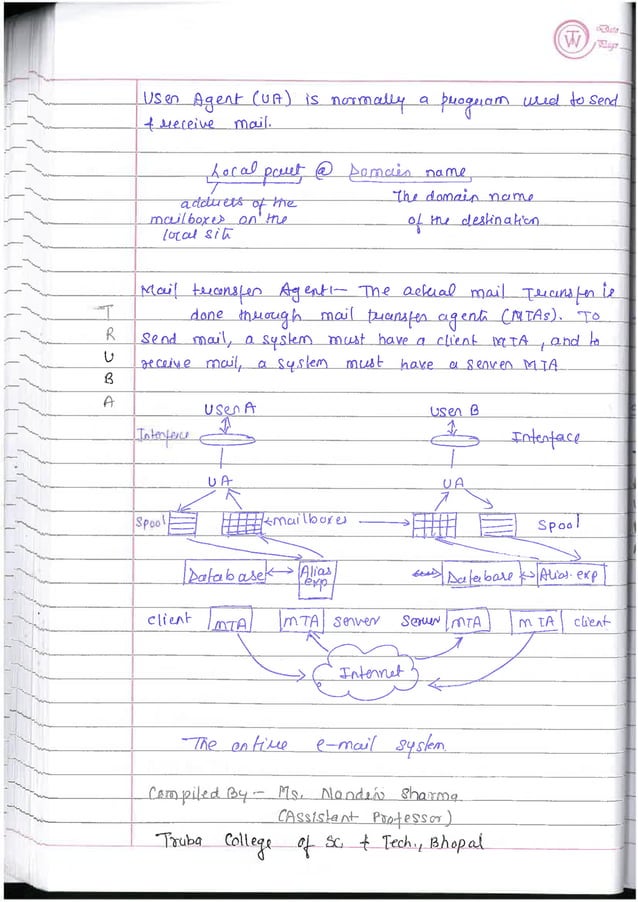 Date
Page
User Agent (UA) is normally a program used to send
& receive mail.
Local part @ Domain name
address of the
mailboxes on the
local site
The domain name
of the destination
Mail transfer Agent:- The actual mail Transfer is
done through mail transfer agents (MTAs). To
send mail, a system must have a client MTA, and to
receive mail, a system must have a server MTA
T
R
U
B
A
User A
User B
Interface
Interface
UA
UA
Spool
mailboxes
Spool
Database
Alias exp
Database
Alias exp
client
MTA
MTA
server
Server
MTA
MTA
client
Internet
The entire e-mail system
Compiled By:- Ms. Nandini Sharma
(Assistant Professor)
Truba College of Sc. & Tech., Bhopal